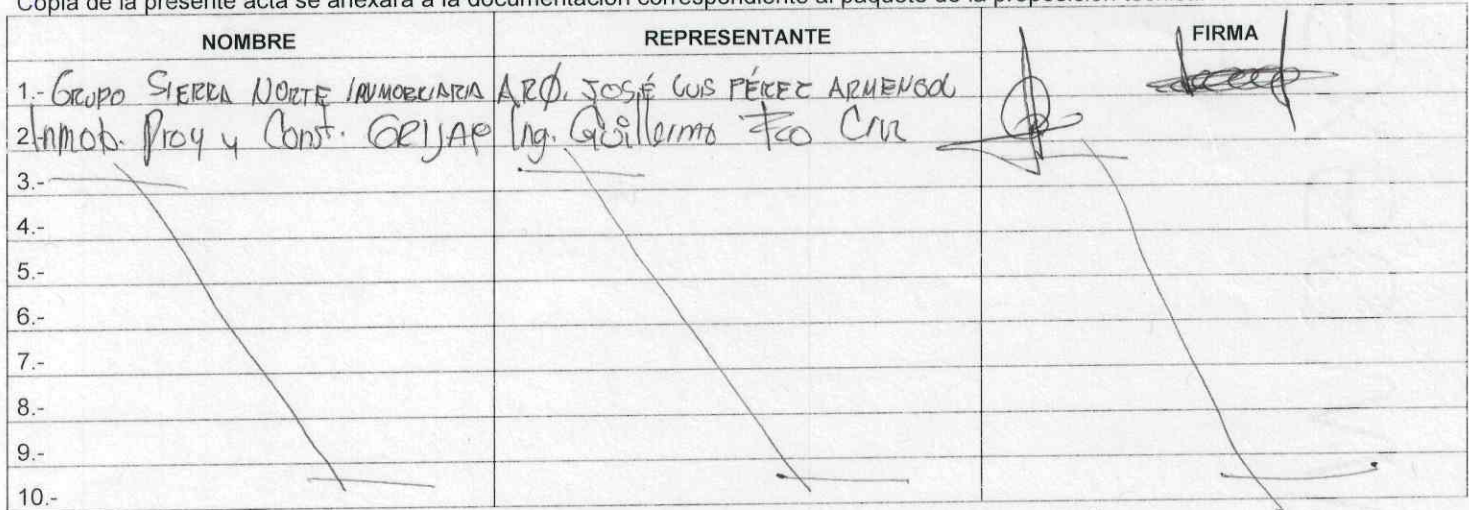 Copia de la presente acta se anexará a la documentación correspondiente al paquete de la proposición
NOMBRE REPRESENTANTE FIRMA
1.- GRUPO SIERRA NORTE INMOBILIARIA ARQ. JOSÉ LUIS PÉREZ ARMENGOL
2 Inmob. Proy y Const. GRIJAP Ing. Guillermo Fco Cruz
3.-
4.-
5.-
6.-
7.-
8.-
9.-
10.-